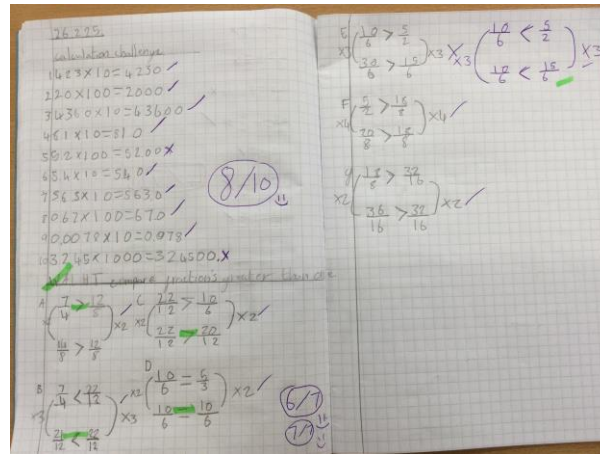 26.2.25
calculation challenge
1 423×10=4230 ✓
2 20×100=2000 ✓
3 4360×10=43600 ✓
4 ×10=810 ✓
5 5.2×100=5200 ×
6 ×10=540 ✓
7 563×10=5630 ✓
8 0.67×100=670 ✓
9 0.0078×10=0.978 ✓
10 3.245×1000=324500. ×
8/10
compare fractions greater than one
A 7/4 > 12/8 ×2 ✓
14/8 > 12/8
B 7/4 < 22/12 ×3 ✓
21/12 < 22/12
C 22/12 > 10/6 ×2 ✓
×2 22/12 > 20/12
D 10/6 = 5/3 ×2 ✓
×2 10/6 = 10/6
6/7
7/7
E 10/6 > 5/2 ×3 ×
×3 30/6 > 15/6
×3 10/6 < 5/2 ×3
10/6 < 15/6
F 5/2 > 18/8 ×4 ✓
×4 20/8 > 18/8
G 18/8 > 32/16 ×2 ✓
×2 36/16 > 32/16